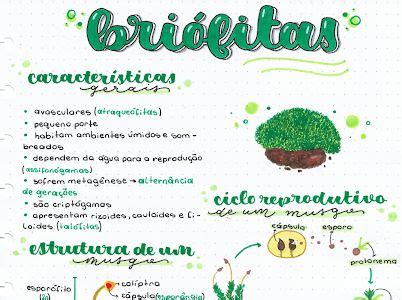 briófitas
características
gerais
• avasculares (atraqueófitas)
• pequeno porte
• habitam ambientes úmidos e som-
breados
• dependem da água para a reprodução
(assifonógamas)
• sofrem metagênese → alternância
de gerações
• são criptógamas
• apresentam rizoides, cauloides e fi-
loides (talófitas)
ciclo reprodutivo
de um musgo
cápsula
esporo
protonema
estrutura de um
musgo
esporófito
caliptra
cápsula (esporângio)